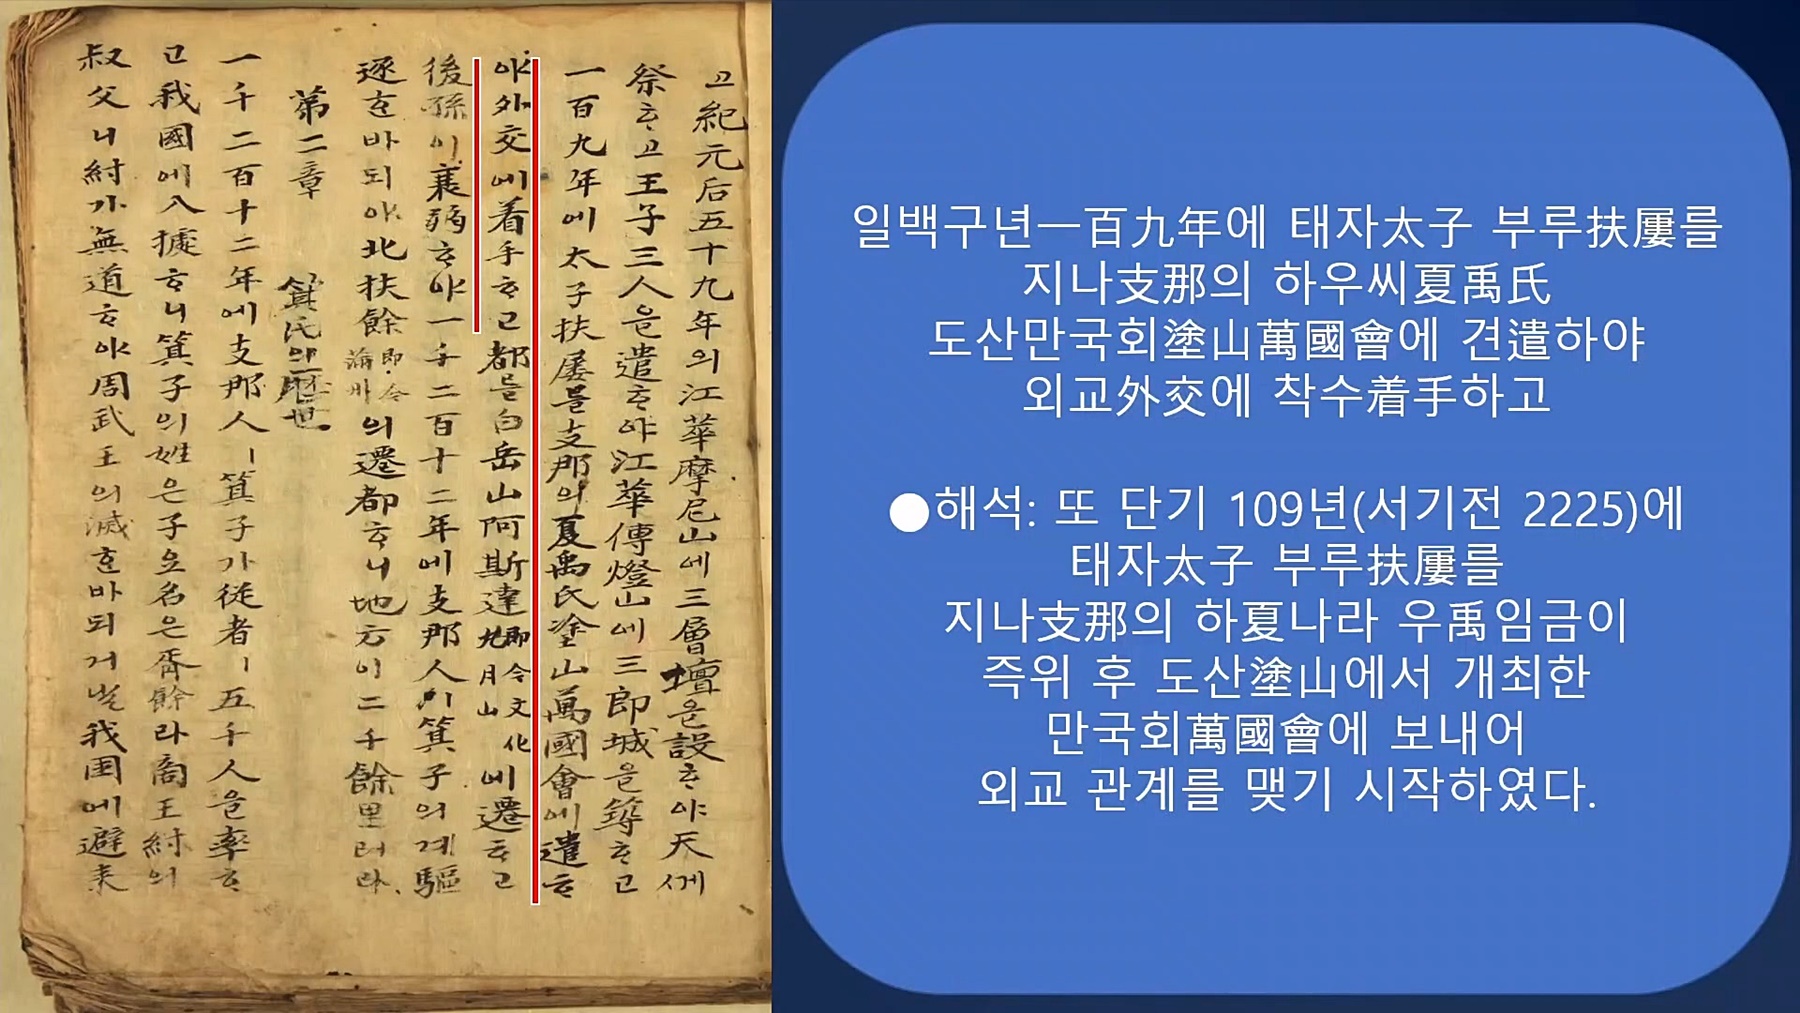 고紀元后五十九年의江華摩尼山에三層壇을設ᄒᆞ야天께
祭ᄒᆞ고王子三人을遣ᄒᆞ야江華傳燈山에三郎城을築ᄒᆞ고
一百九年에太子扶屢를支那의夏禹氏塗山萬國會에遣ᄒᆞ
야外交에着手ᄒᆞ고都를白岳山阿斯達即今文化九月山에遷ᄒᆞ고
後孫이衰弱ᄒᆞ야一千二百十二年에支那人箕子의게驅
逐ᄒᆞᆫ바되야北扶餘即今의遷都ᄒᆞ니地方이二千餘里러라.
第二章 箕氏의歷世
一千二百十二年에支那人ㅣ箕子가徒者ㅣ五千人을率ᄒᆞ
고我國에入據ᄒᆞ니箕子의姓은子요名은胥餘라商王紂의
叔父니紂가無道ᄒᆞ야周武王의滅ᄒᆞᆫ바되거날我国에避来
일백구년一百九年에 태자太子 부루扶屢를
지나支那의 하우씨夏禹氏
도산만국회塗山萬國會에 견遣하야
외교外交에 착수着手하고
●해석: 또 단기 109년(서기전 2225)에
태자太子 부루扶屢를
지나支那의 하夏나라 우禹임금이
즉위 후 도산塗山에서 개최한
만국회萬國會에 보내어
외교 관계를 맺기 시작하였다.